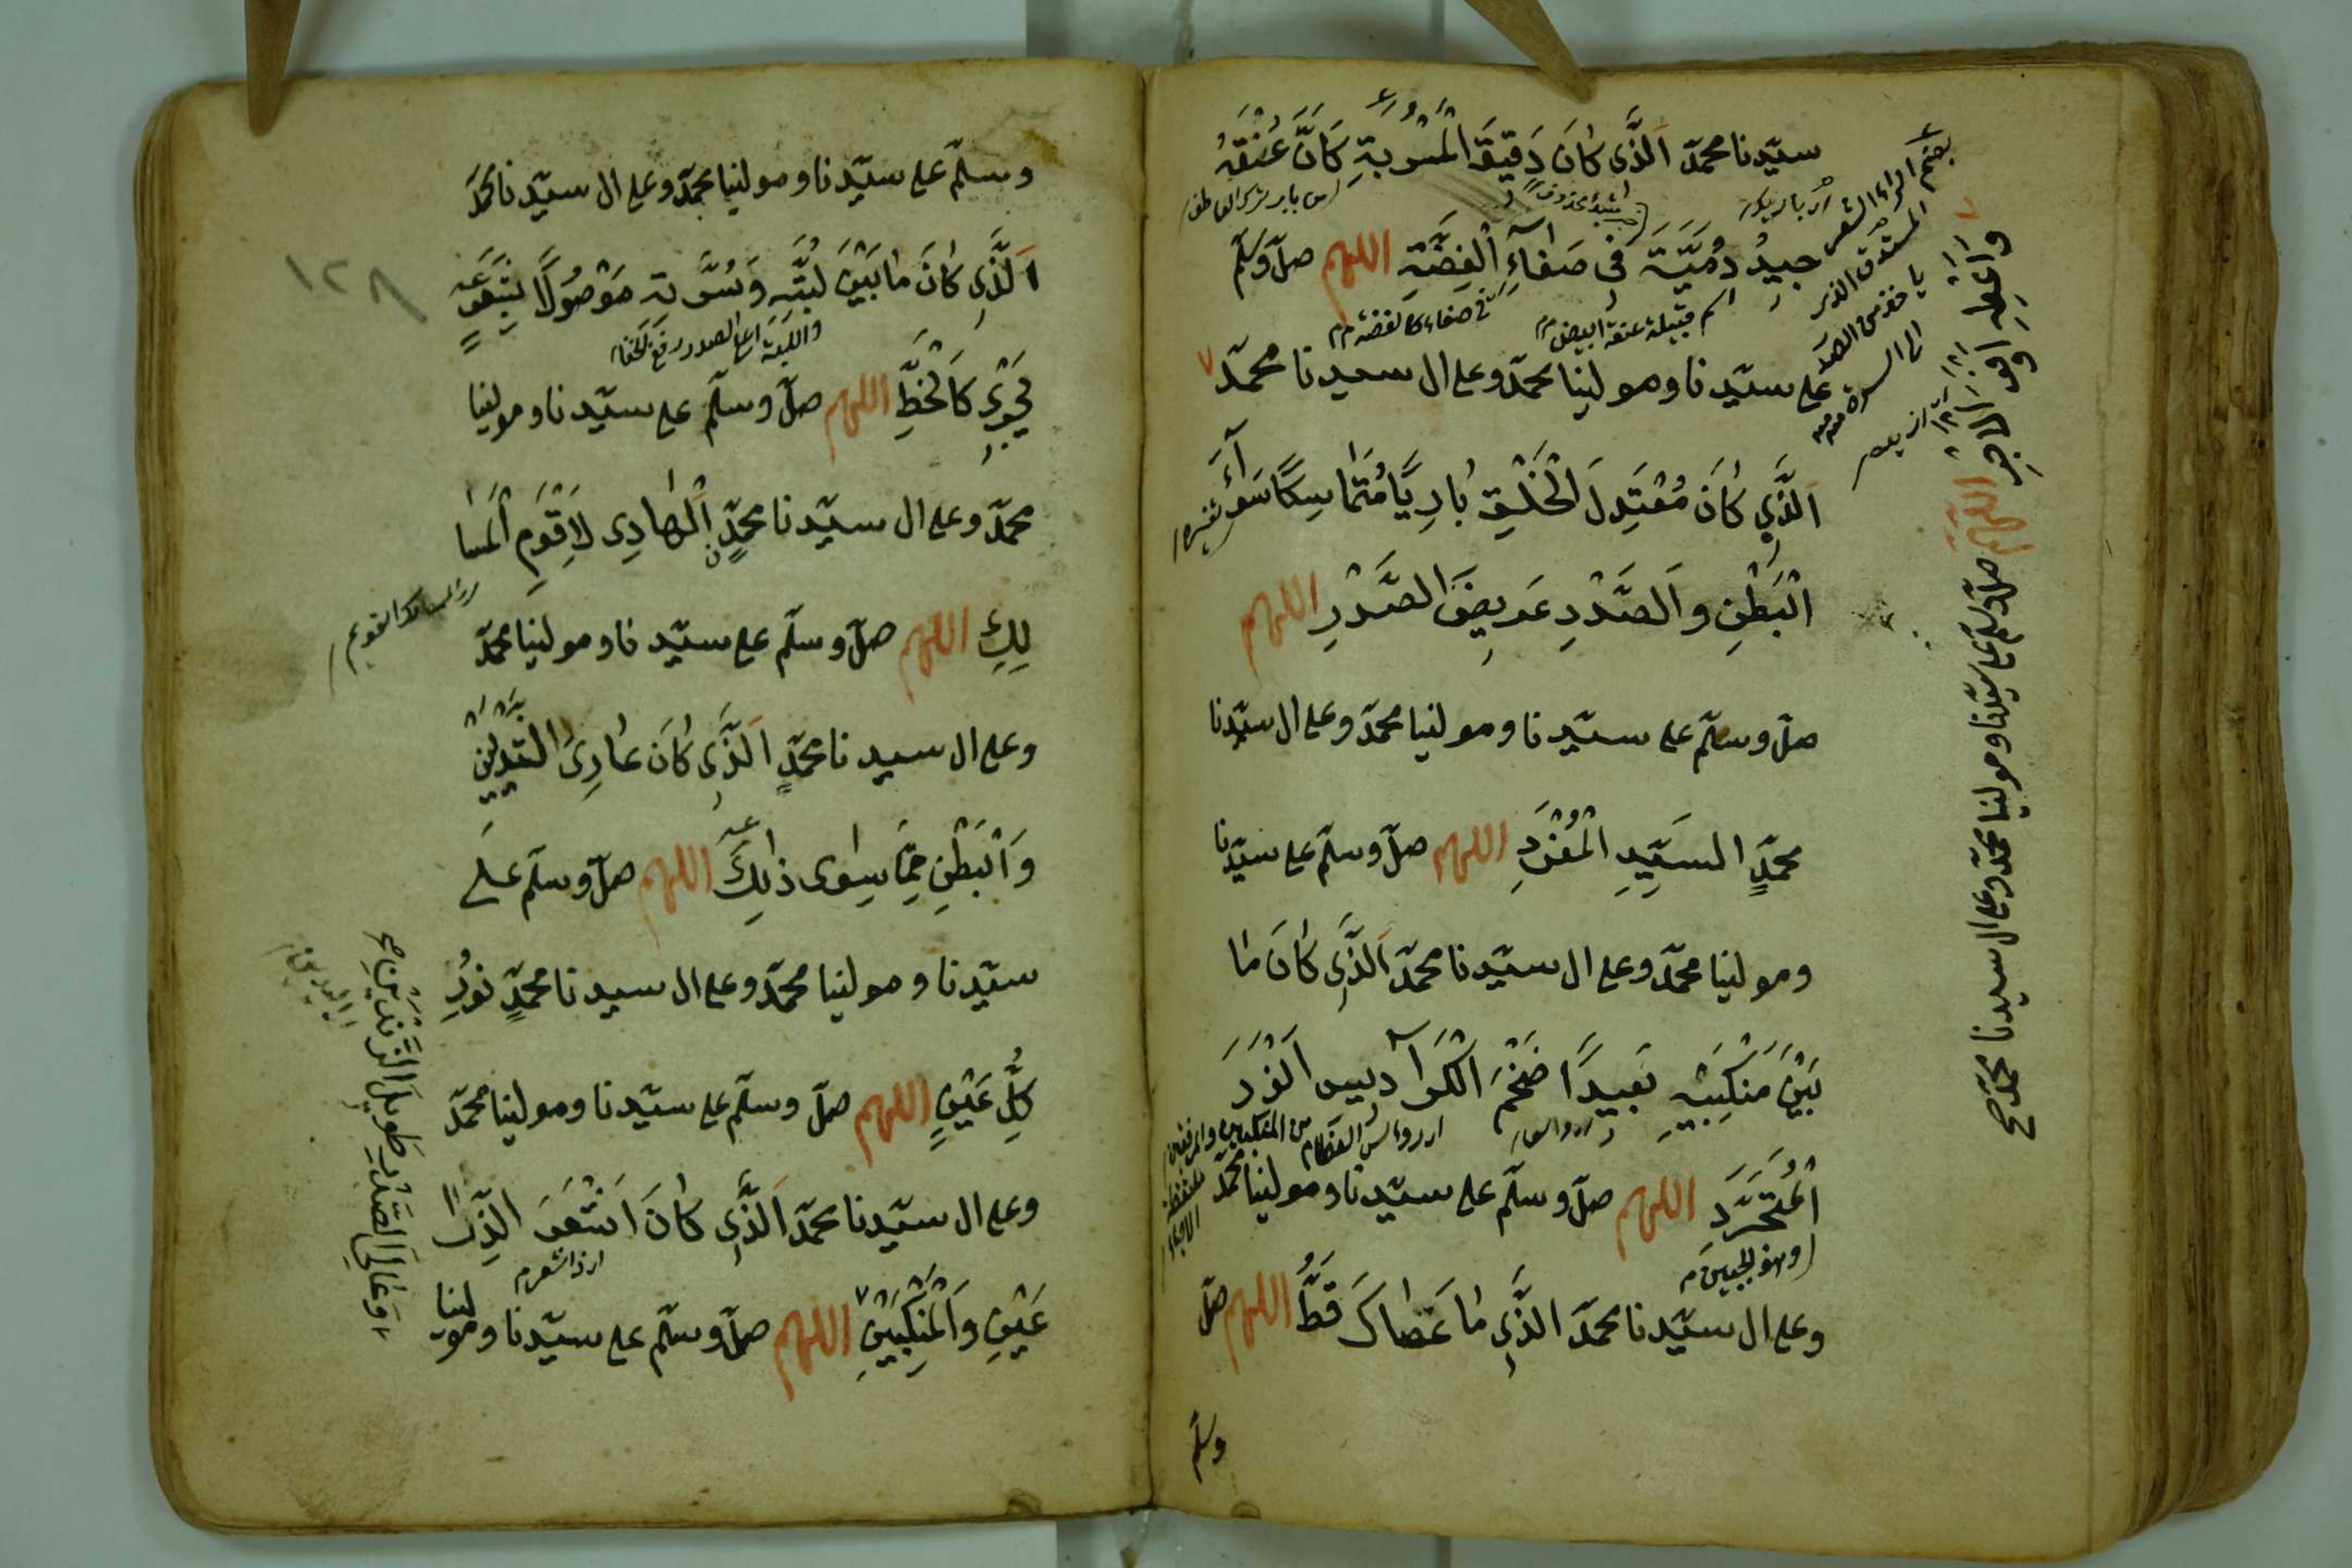 سيّدنا محمدّ اَلَّذى كانَ دَقِيقَ الْمَسْرُبَةِ كَانَّ عُنُقَهُ
جيدُ دُمْيَةٍ فى صَفاءِ الْفِضَّةِ اللهم صلّ وسلّم
على سيّدنا ومولينا محمدّ وعلى ال سيدنا محمدّ
اَلَّذِى كانَ مُعْتَدِلَ الْخَلْقِ بادِيًا مُتَماسِكًا سَوآءَ
الْبَطْنِ وَالصَّدْرِ عَرِيضَ الصَّدْرِ اللهم
صلّ وسلّم على سيّدنا ومولينا محمدّ وعلى ال سيّدنا
محمدٍّ السَيِّدِ الْمُفْرَدِ اللهم صلّ وسلّم على سيّدنا
ومولينا محمدّ وعلى ال سيّدنا محمدّ اَلَّذِى كانَ ما
بَيْنَ مَنْكِبَيْهِ بَعِيدًا ضَخْمَ الْكَرآديسِ اَنْوَرَ
الْمُتَجَرَّدِ اللهم صلّ وسلّم على سيّدنا ومولينا محمدّ
وعلى ال سيّدنا محمدّ الَّذِى ما عَصاكَ قَطُّ اللهم صلّ
وسلّم
بضم الراء الشعر
المستدق الذى
يأخذ من الصدر
الى السرة منه
اللهم صلّ وسلّم على سيّدنا ومولينا محمدّ وعلى ال سيدنا محمدّ صح
وسلّم على سيّدنا ومولينا محمدّ وعلى ال سيّدنا محمدّ
١٢٨
اَلَّذِى كانَ ما بَيْنَ لَبَّتِهِ وَسُرَّتِهِ مَوْصُولًا بِشَعَرٍ
يَجْرِى كَالْخَطِّ اللهم صلّ وسلّم على سيّدنا ومولينا
محمدّ وعلى ال سيّدنا محمدٍّ اَلْهادِى لاَقْوَمِ الْمَسا
لِكِ اللهم صلّ وسلّم على سيّدنا ومولينا محمدّ
وعلى ال سيدنا محمدٍّ اَلَّذِى كانَ عارِىَ الثَّدْيَيْنِ
وَالْبَطْنِ مِمّا سِوى ذالِكَ اللهم صلّ وسلّم على
سيّدنا ومولينا محمدّ وعلى ال سيدنا محمدٍّ نُورِ
كُلِّ عَيْنٍ اللهم صلّ وسلّم على سيّدنا ومولينا محمدّ
وعلى ال سيّدنا محمدّ اَلَّذِى كانَ اَشْعَرَ الذِّرا
عَيْنِ وَالْمَنْكِبَيْنِ اللهم صلّ وسلّم على سيّدنا ومولينا
وَعالِىَ الصَّدْرِ طَوِيلَ الزَّنْدَيْنِ صح